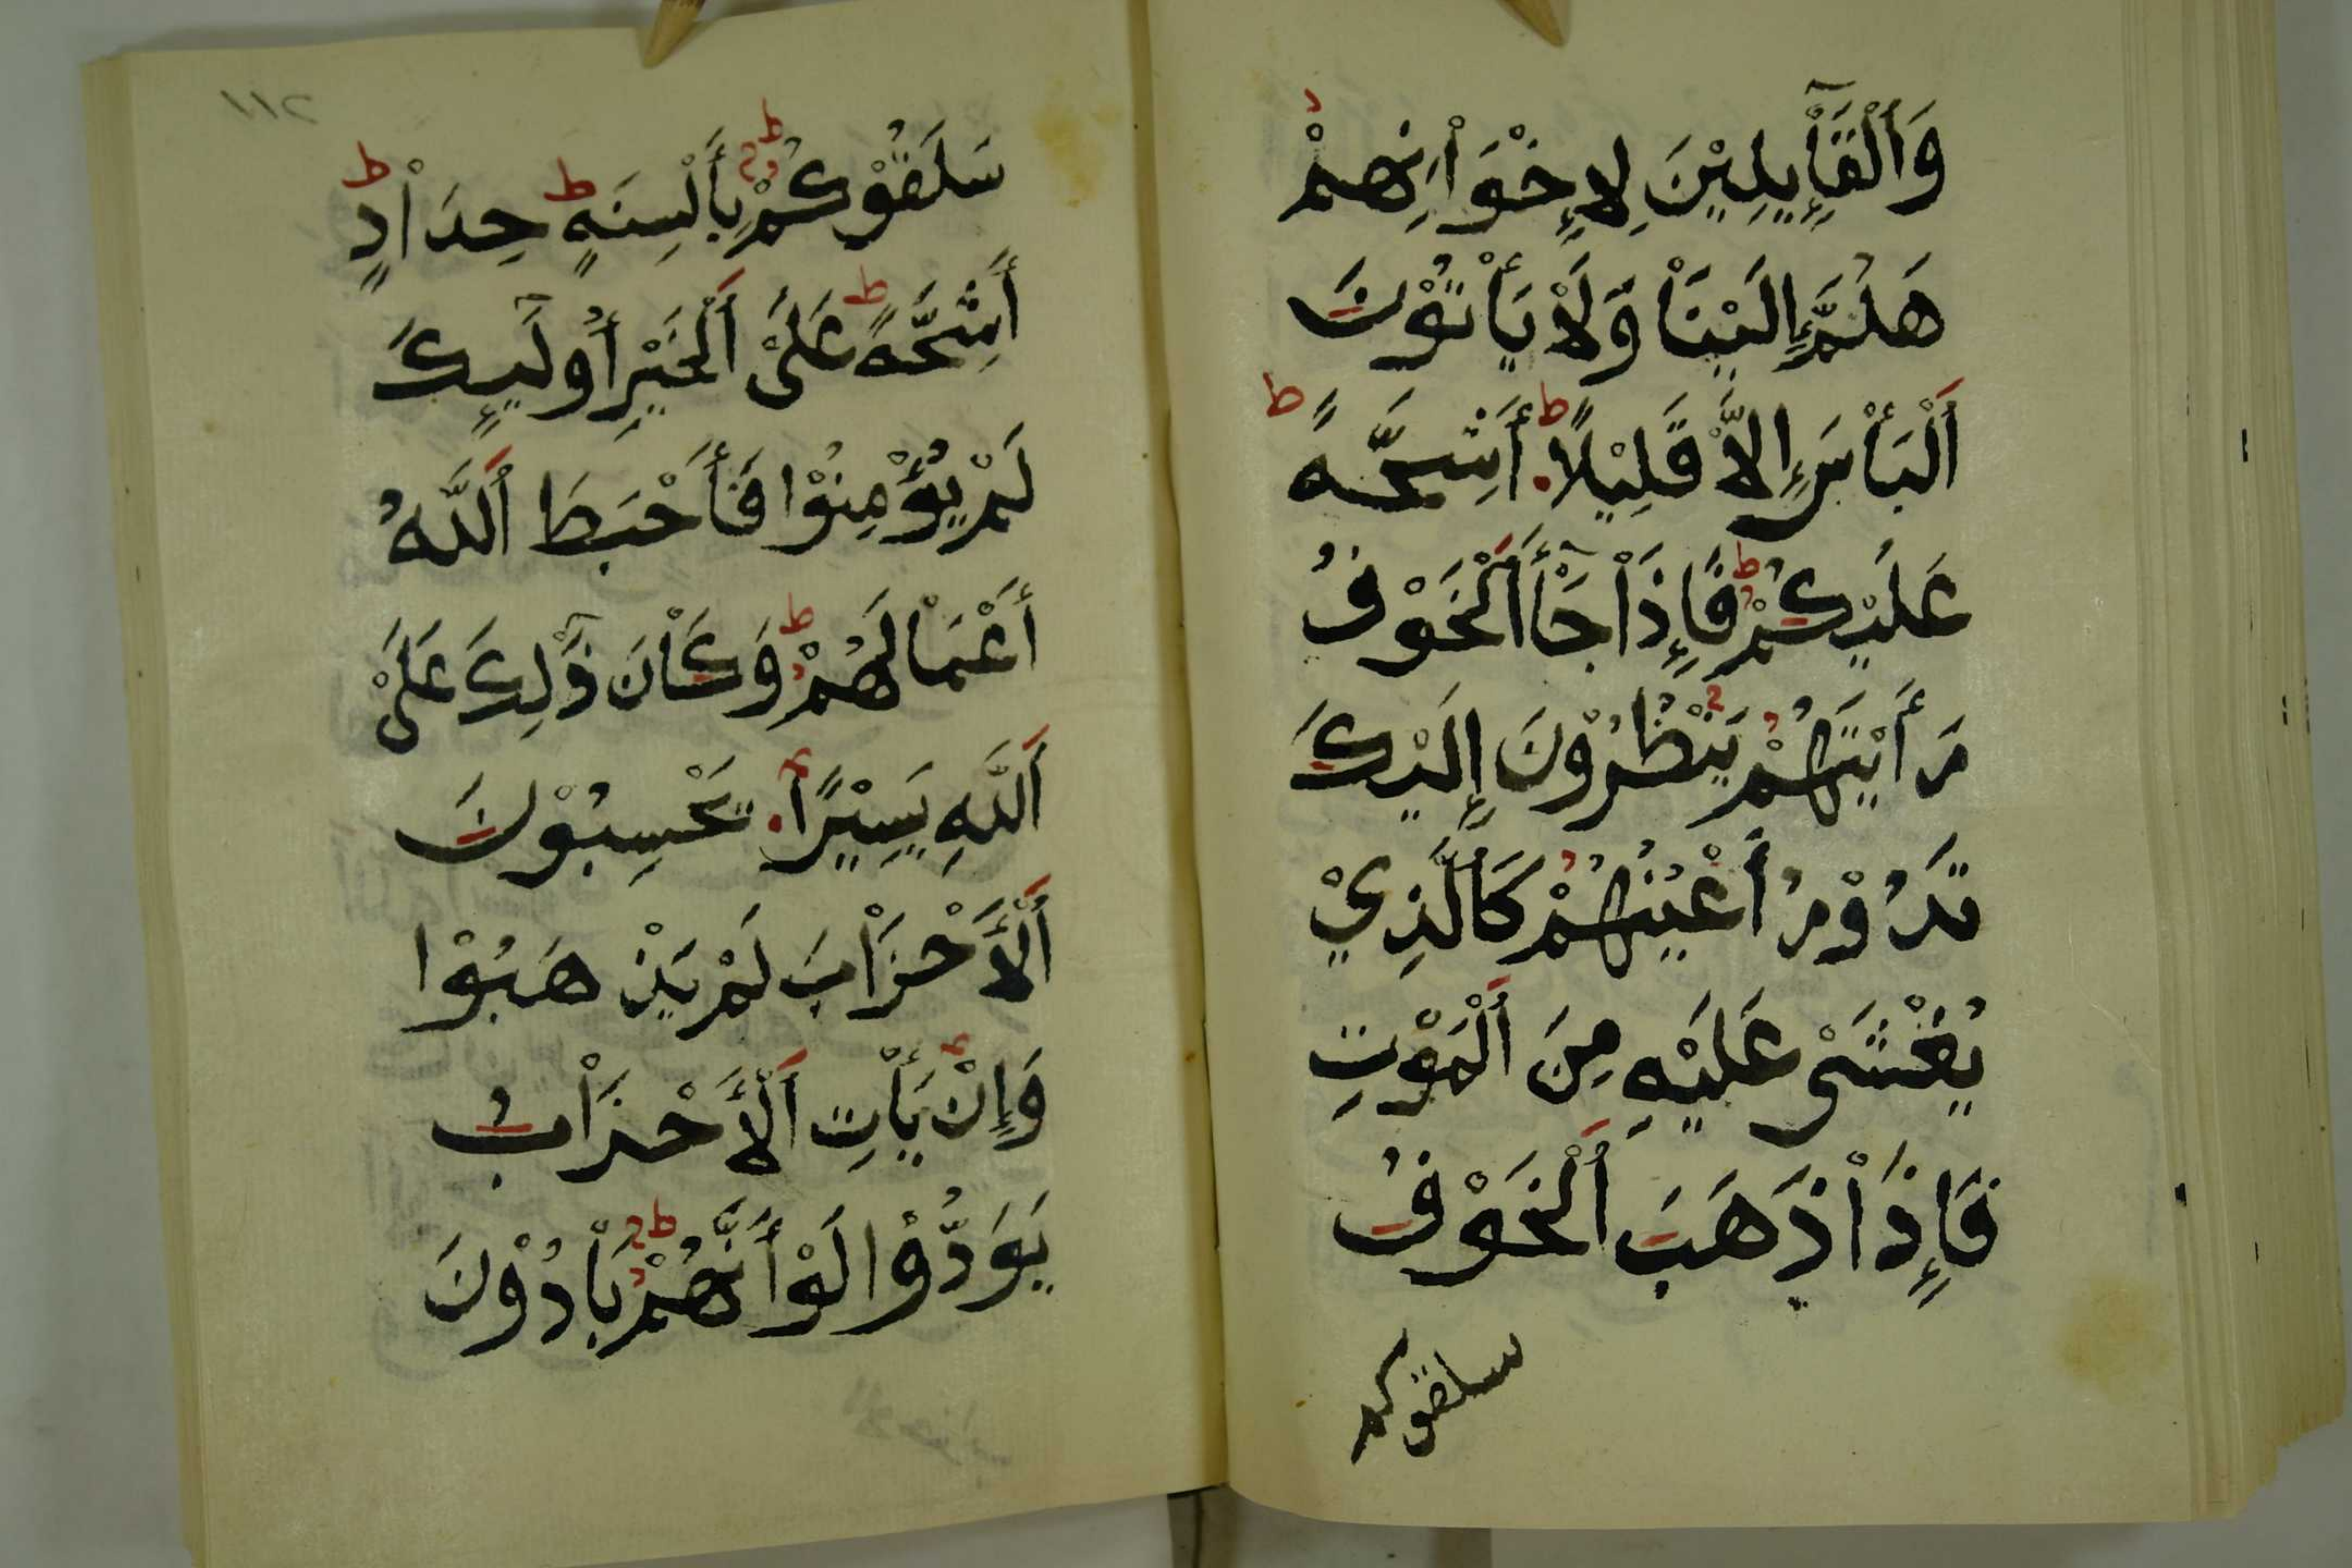 وَاَلْقَآيِلِيْنَ لِاِخْوَاْنِهِمْ
هَلُمَّ إِلَيْنَاْ وَلَاْ يَأْتُوْنَ
اَلْبَأْسَ إِلَّاْ قَلِيْلًا أَشِحَّةً
عَلَيْكُمْ فَإِذَاْ جَآْءَ اَلْخَوْفُ
رَأَيْتَهُمْ يَنْظُرُوْنَ إِلَيْكَ
تَدُوْرُ أَعْيُنُهُمْ كَاَلَّذِيْ
يُغْشَىْ عَلَيْهِ مِنَ اَلْمَوْتِ
فَإِذَاْ ذَهَبَ اَلْخَوْفُ
سلقوكم
١١٢
سَلَقُوْكُمْ بِأَلْسِنَةٍ حِدَاْدٍ
أَشِحَّةً عَلَىْ اَلْخَيْرِ أُوْلَٓيِٕكَ
لَمْ يُؤْمِنُوْا فَأَحْبَطَ اَللَّهُ
أَعْمَاْلَهُمْ وَكَاْنَ ذَٓلِكَ عَلَىْ
اَللَّهِ يَسِيْرًا يَحْسِبُوْنَ
اَلْأَحْزَاْبَ لَمْ يَذْهَبُوْا
وَإِنْ يَأْتِ اَلْأَحْزَاْبُ
يَوَدُّوْا لَوْ أَنَّهُمْ بَاْدُوْنَ